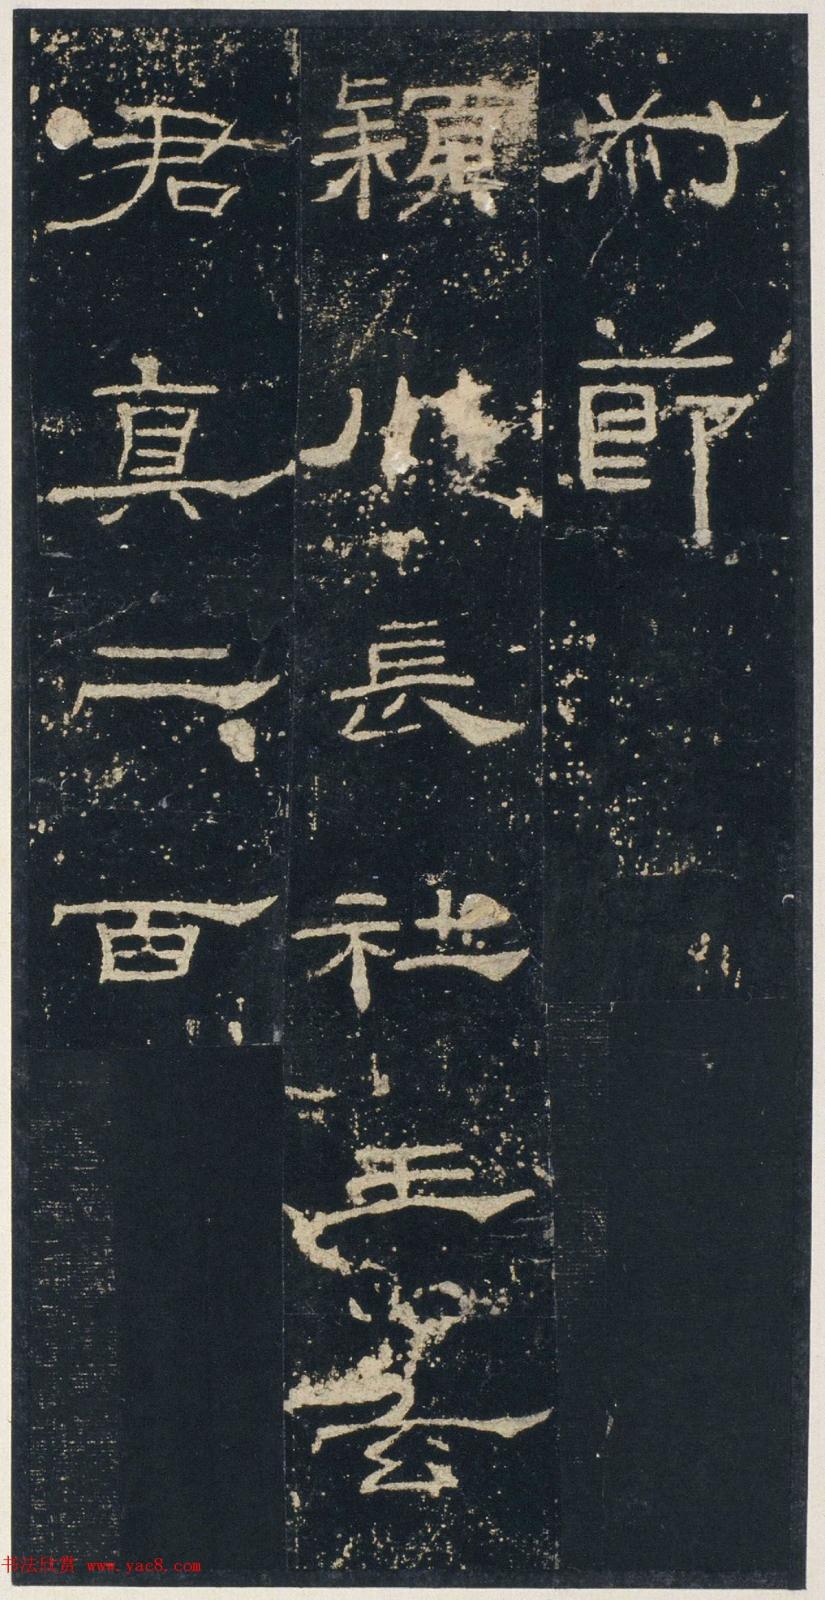 叔節
穎川長社王玄
君真二百
书法欣赏 www.yac8.com